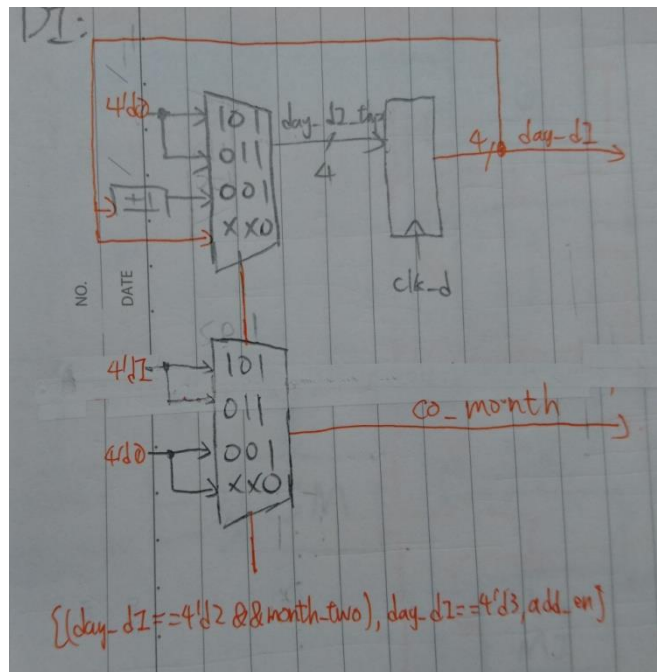 DI:
4'd0
101
011
001
XX0
+1
day_dI_tmp
4
4, day_dI
clk_d
NO.
DATE
4'dI
4'd0
101
011
001
XX0
co_month
{(day_dI==4'd2 &&month_two), day_dI==4'd3, add_en}